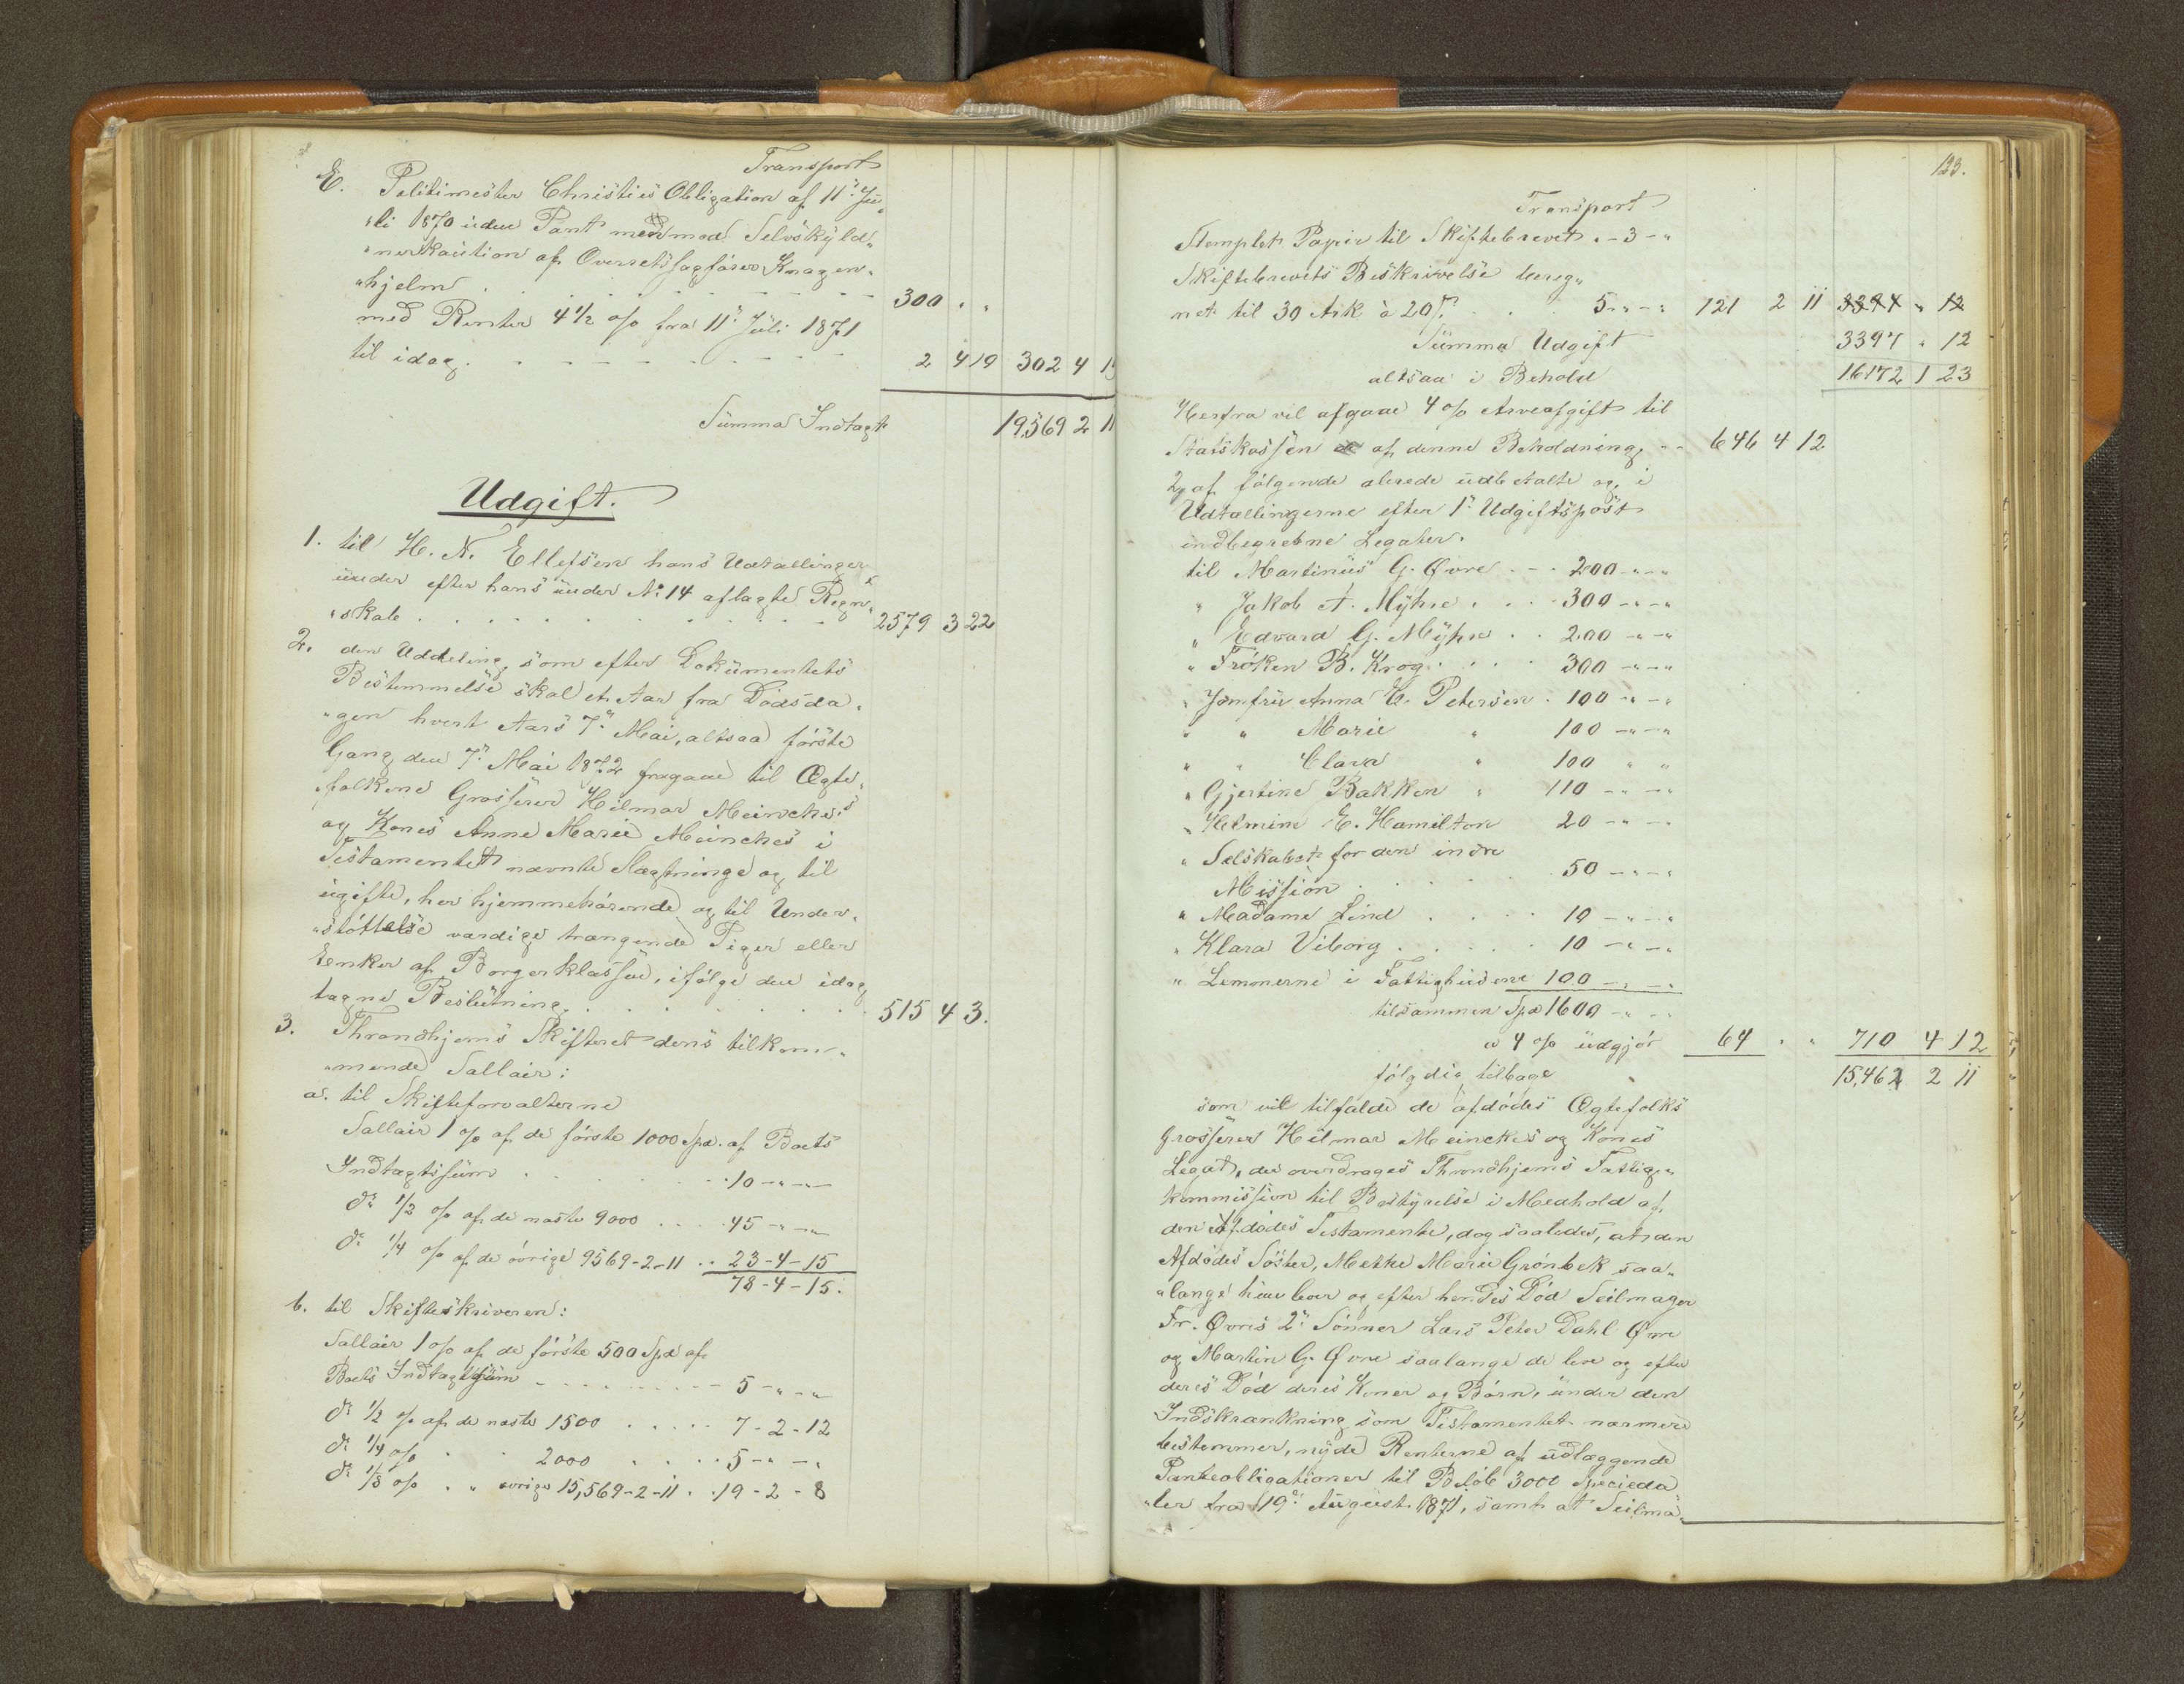 Transport
E. Politimester Christies Obligation af 11te Ju„
„li 1870 uden Pant men mod Selvskyld„
„nerkaution af Overretssagfører Knagen„
„hjelm . . . . . . 300 „ „
med Renter 4 1/2 % fra 11te Juli 1871
til idag . . . . . . 2 4 19 302 4 19
Summa Indtægt 19,569 2 11
Udgift.
1. til H. N. Ellefsen hans Udtællinger
under efter hans under No 14 aflagte Regn„
„skab . . . . . . 2579 3 22
2. den Uddeling, som efter Dokumentets
Bestemmelse skal et Aar fra Dødsda„
„gen hvert Aars 7de Mai, altsaa første
Gang den 7de Mai 1872 fragaae til Ægte„
„folkene Grosserer Hilmar Meinckes
og Kones Anne Marie Meinckes i
Testamentet nævnte Slægtninge og til
ugifte, her hjemmehørende og til Under„
„støttelse værdige trængende Piger eller
Enker af Borgerklassen, ifølge den idag
tagne Beslutning . . . . . . 515 4 3.
3. Throndhjems Skifteret dens tilkom„
„mende Sallair:
a. til Skifteforvalterne
Sallair 1 % af de første 1000 Spd. af Boets
Indtægtssum . . . . . . 10 - „ - „
do 1/2 % af de næste 9000 . . . . 45 - „ - „
do 1/4 % af de øvrige 9569-2-11 . . 23-4-15
78-4-15.
b. til Skifteskriveren:
Sallair 1 % af de første 500 Spd af
Boets Indtægtssum . . . . . . 5 - „ - „
do 1/2 % af de næste 1500 . . . . . 7-2-12
do 1/4 % „ „ 2000 . . . . 5 - „ - „
do 1/8 % „ „ øvrige 15,569-2-11 . . 19-2-8
123.
Transport
Stemplet Papir til Skiftebrevet „-3-„
Skiftebrevets Beskrivelse bereg„
net til 30 Ark à 20 ß . . . 5 - „ - „ 121 2 11 3394 „ 12
Summa Udgift 3397 „ 12
altsaa i Behold 16172 1 23
Herfra vil afgaae 4 % Arveafgift til
Statskassen af denne Beholdning . . 646 4 12
2, af følgende alerede udbetalte og i
Udtællingerne efter 1ste Udgiftspost
indbegrebne Legater.
til Martinus G. Øvre . . . 200 - „ - „
„ Jakob A. Myhre . . . . 300 - „ - „
„ Edvard G. Myhre . . 200 - „ - „
„ Frøken B. Krog . . . . 300 - „ - „
„ Jomfru Anna E. Petersen . 100 - „ - „
„ „ Marie „ 100 - „ - „
„ „ Clara „ 100 „ „
„ Gjertine Bakken „ 110 - „ - „
„ Helmine E. Hamilton 20 - „ - „
„ Selskabet for den indre
Mission . . . . . . 50 - „ - „
„ Madame Lind . . . . 10 - „ - „
„ Klara Viborg . . . . . 10 - „ - „
„ Lemmerne i Fattighusene 100 - „ - „
tilsammen Spd 1600 - „ - „
a 4 % udgjør 64 „ „ 710 4 12
følgelig tilbage 15,461 2 11
som vil tilfalde de afdødes Ægtefolks
Grosserer Hilmar Meinckes og Kones
Legat, der overdrages Throndhjems Fattig„
kommission til Bestyrelse i Medhold af
den Afdødes Testamente, dog saaledes, at den
Afdødes Søster, Mette Marie Grønbek saa„
„længe hun lever og efter hendes Død Seilmager
Fr. Øvres 2de Sønner Lars Peter Dahl Øvre
og Martin G. Øvre saalænge de leve og efter
deres Død deres Koner og Børn, under den
Indskrænkning som Testamentet nærmere
bestemmer, nyde Renterne af udlæggende
Panteobligationer til Beløb 3000 Specieda„
„ler fra 19de August 1871, samt at Seilma„